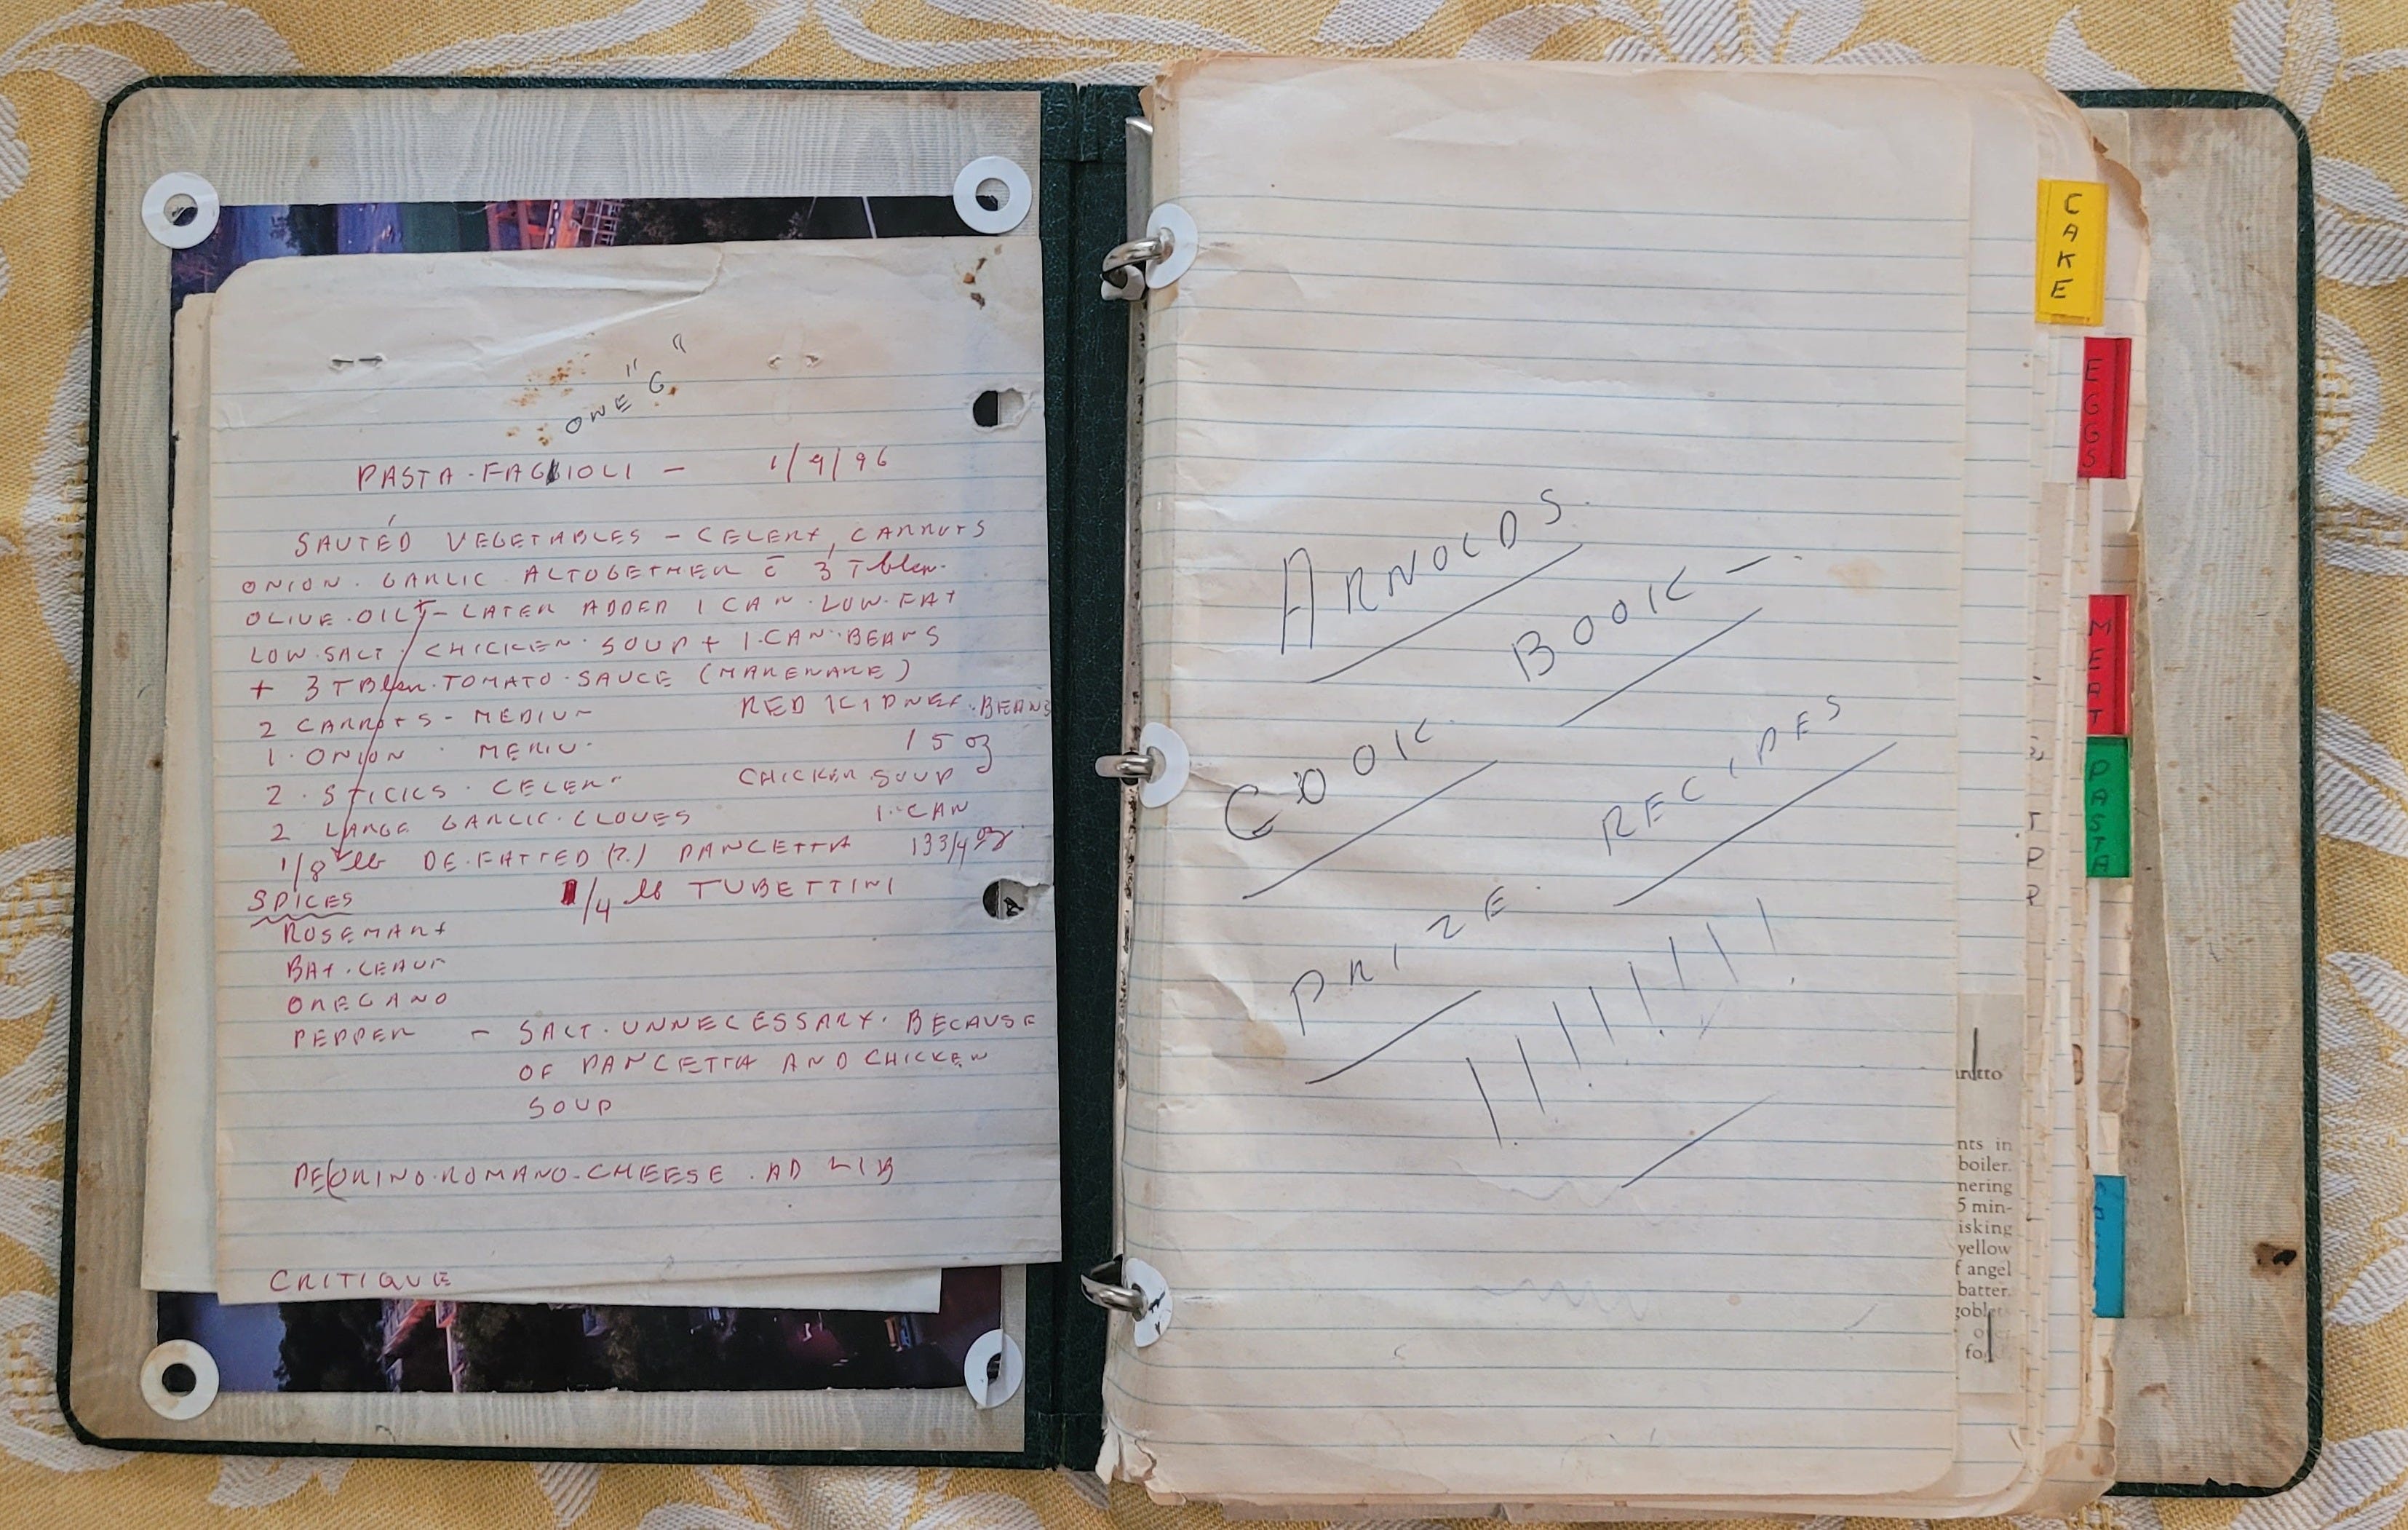 ONE "G"
PASTA-FAGIOLI - 1/9/96
SAUTÉD VEGETABLES - CELERY, CARROTS
ONION. GARLIC ALTOGETHER c̄ 3 Tblsn.
OLIVE.OIL + - LATER ADDED 1 CAN.LOW.FAT
LOW.SALT. CHICKEN.SOUP + 1.CAN.BEANS
+ 3 TBlsn.TOMATO.SAUCE (MARENARE)
2 CARROTS - MEDIUM RED KIDNEY.BEANS
1.ONION MEDIU. 15 oz
2.STICKS.CELERY CHICKEN SOUP
2 LARGE GARLIC.CLOVES 1.CAN
1/8 lb DE.FATTED (?) PANCETTA 13 3/4 oz.
SPICES 1/4 lb TUBETTINI
ROSEMARY
BAY.LEAVE
OREGANO
PEPPER - SALT.UNNECESSARY. BECAUSE
OF PANCETTA AND CHICKEN
SOUP
PECORINO.ROMANO.CHEESE. AD LIB
CRITIQUE
ARNOLDS
BOOK -
COOK
RECIPES
PRIZE
!!!!!!!!
CAKE
EGGS
MEAT
PASTA
nts in
boiler.
mering
5 min-
isking
yellow
f angel
batter.